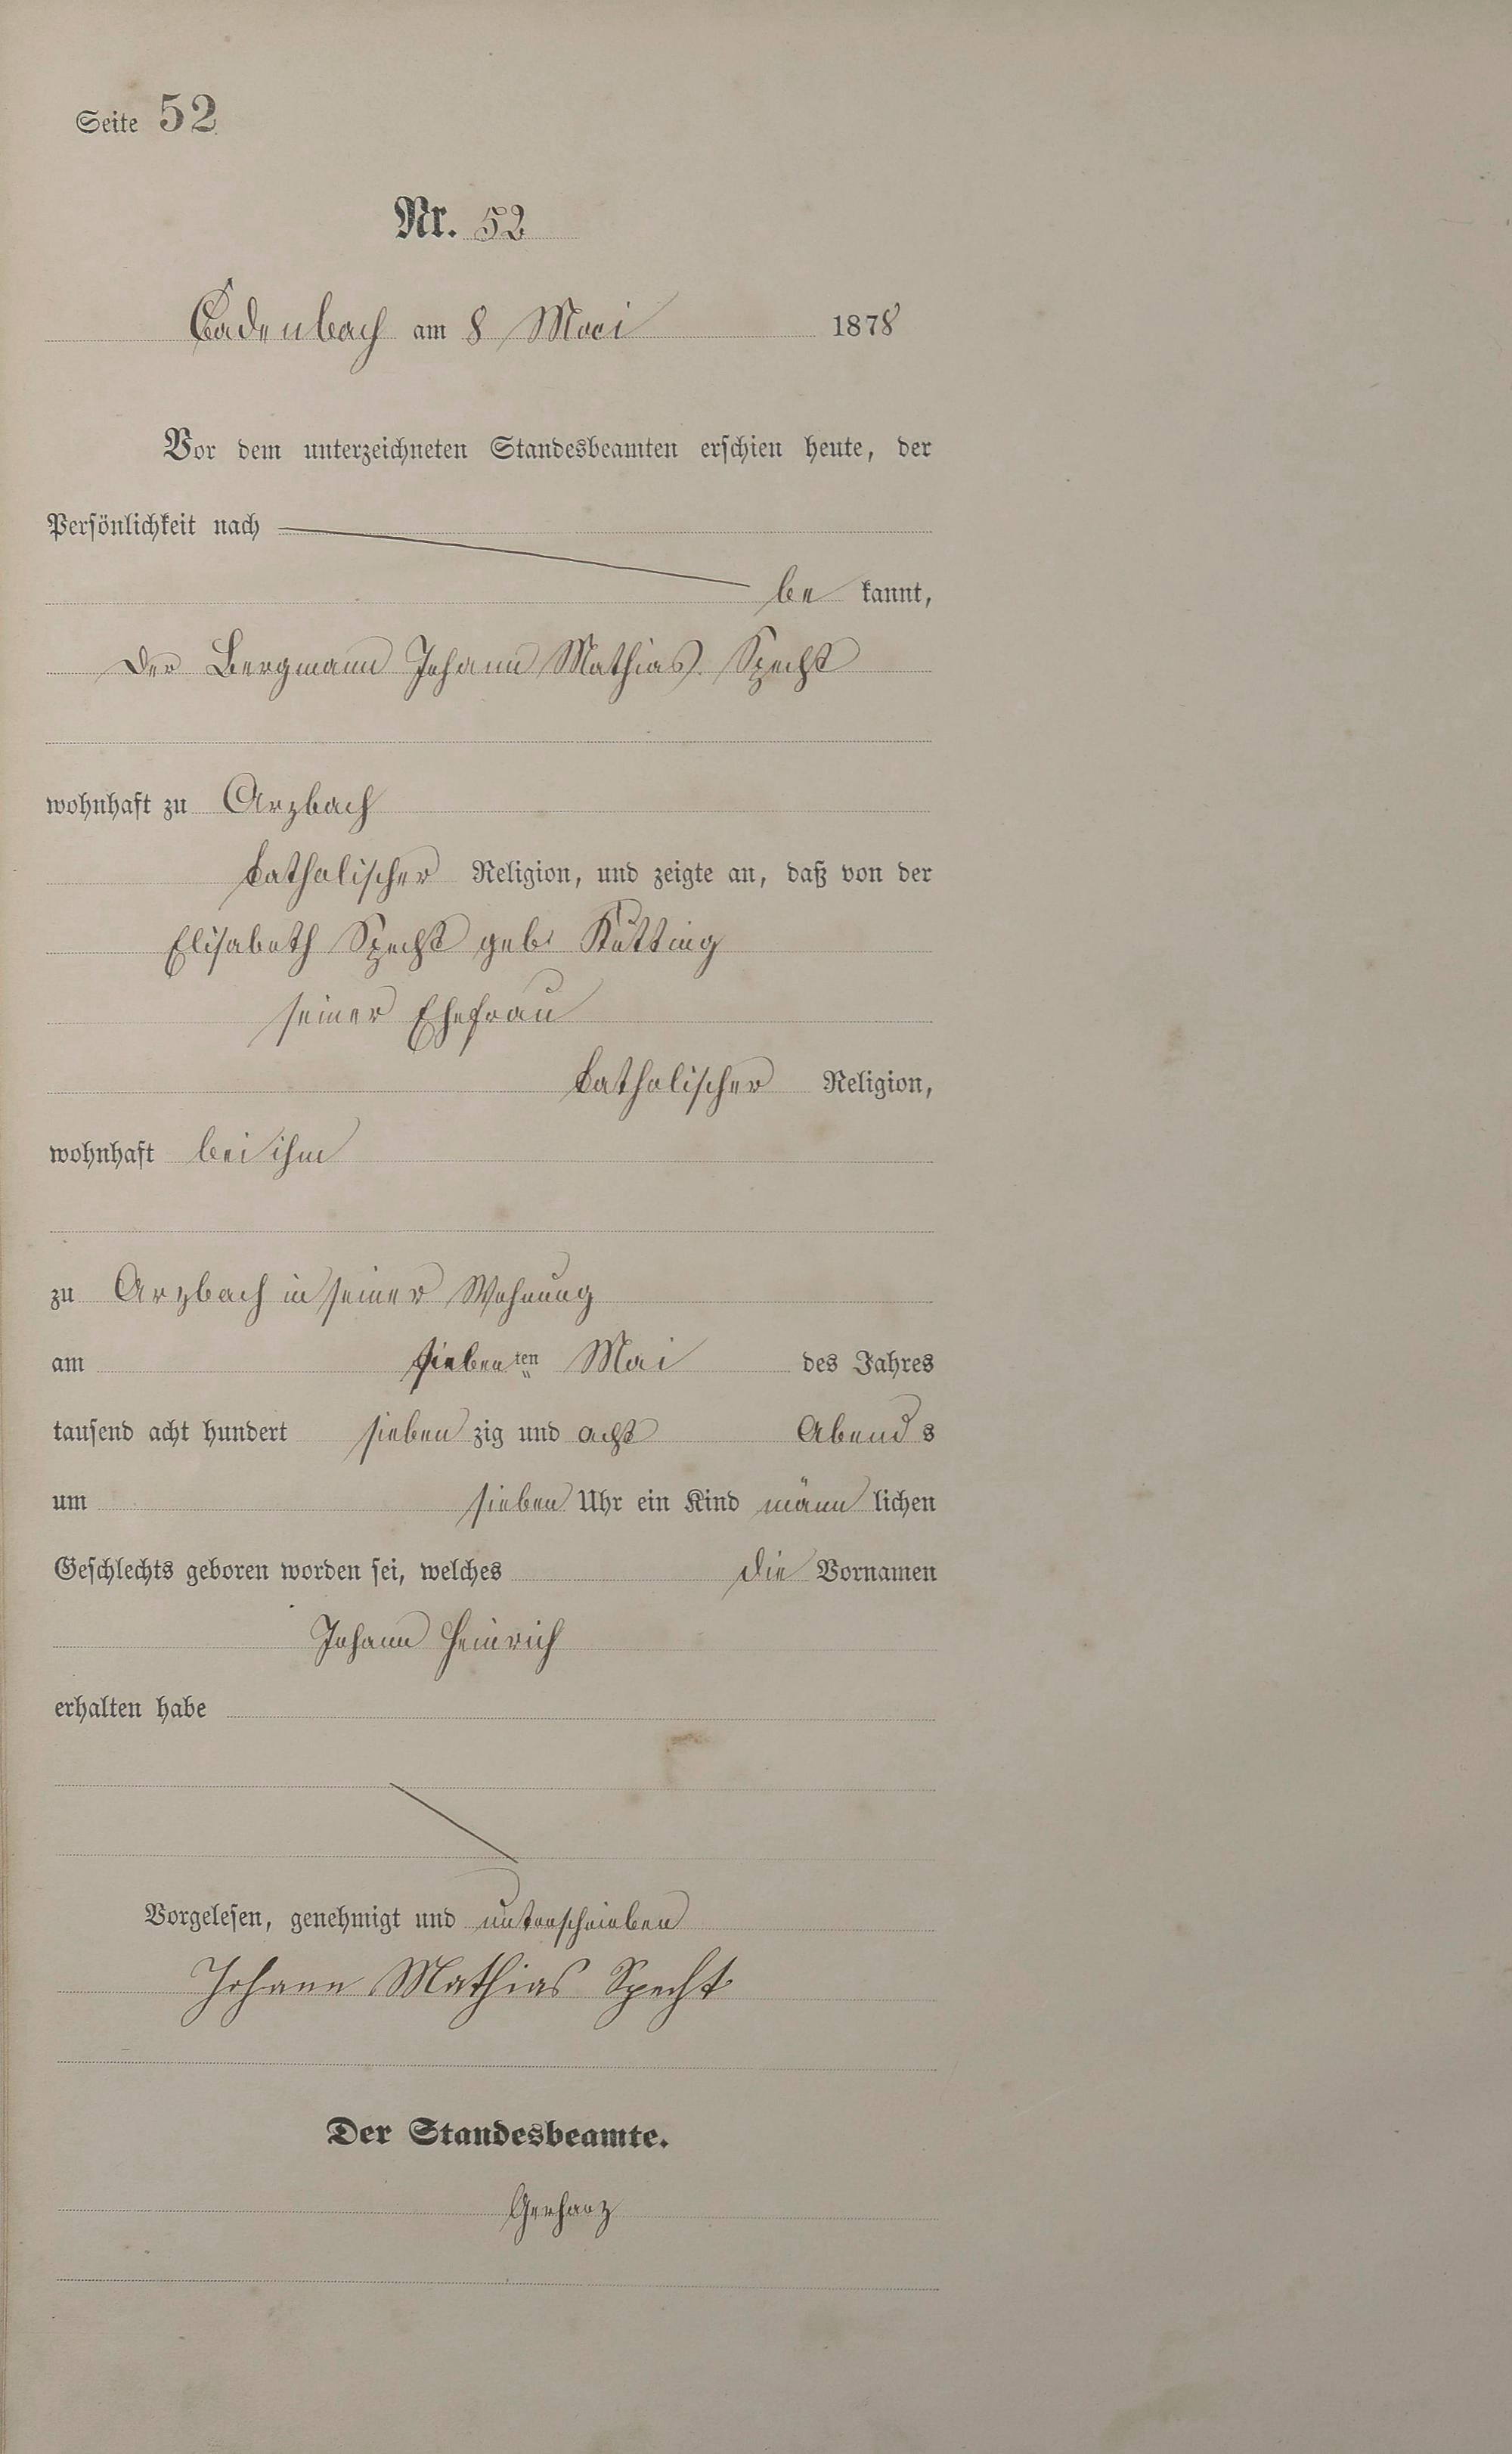 Seite 52
Nr. 52
Cadenbach am 8 Mai 1878
Vor dem unterzeichneten Standesbeamten erschien heute, der
Persönlichkeit nach
be kannt,
der Bergmann Johann Mathias Specht
wohnhaft zu Arzbach
katholischer Religion, und zeigte an, daß von der
Elisabeth Specht geb.
seiner Ehefrau
katholischer Religion,
wohnhaft bei ihm
zu Arzbach in seiner Wohnung
am siebenten Mai des Jahres
tausend acht hundert sieben zig und acht Abends
um sieben Uhr ein Kind männ lichen
Geschlechts geboren worden sei, welches die Vornamen
Johann Heinrich
erhalten habe
Vorgelesen, genehmigt und unterschrieben
Johann Mathias Specht
Der Standesbeamte.
Gerharz